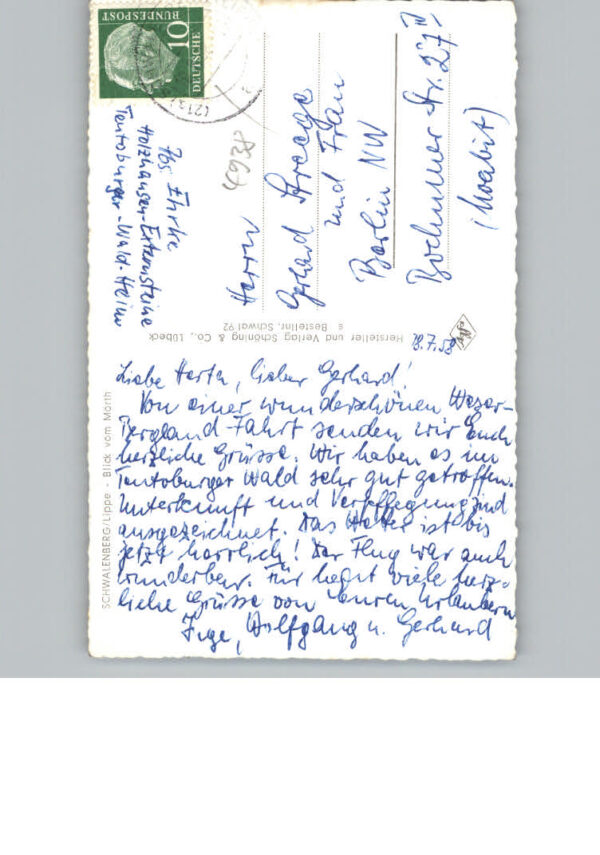 DEUTSCHE
BUNDESPOST
10
(21a)
4938
Abs. Ehrke
Holzhausen-Externsteine
Teutoburger-Wald-Heim
Herrn
Gerhard
und Frau
Berlin NW
Bochumer Str. 27 IV
(Moabit)
Hersteller und Verlag Schöning & Co., Lübeck
Bestellnr. Schwal 92
Agfa
SCHWALENBERG/Lippe - Blick vom Mörth
18.7.58
Liebe Herta, lieber Gerhard!
Von einer wunderschönen Weser-
Bergland-Fahrt senden wir Euch
herzliche Grüsse. Wir haben es im
Teutoburger Wald sehr gut getroffen.
Unterkunft und Verpflegung sind
ausgezeichnet. Das Wetter ist bis
jetzt herrlich! Der Flug war auch
wunderbar. Für heute viele herz-
liche Grüsse von Euren Urlaubern
Inge, Wolfgang u. Gerhard